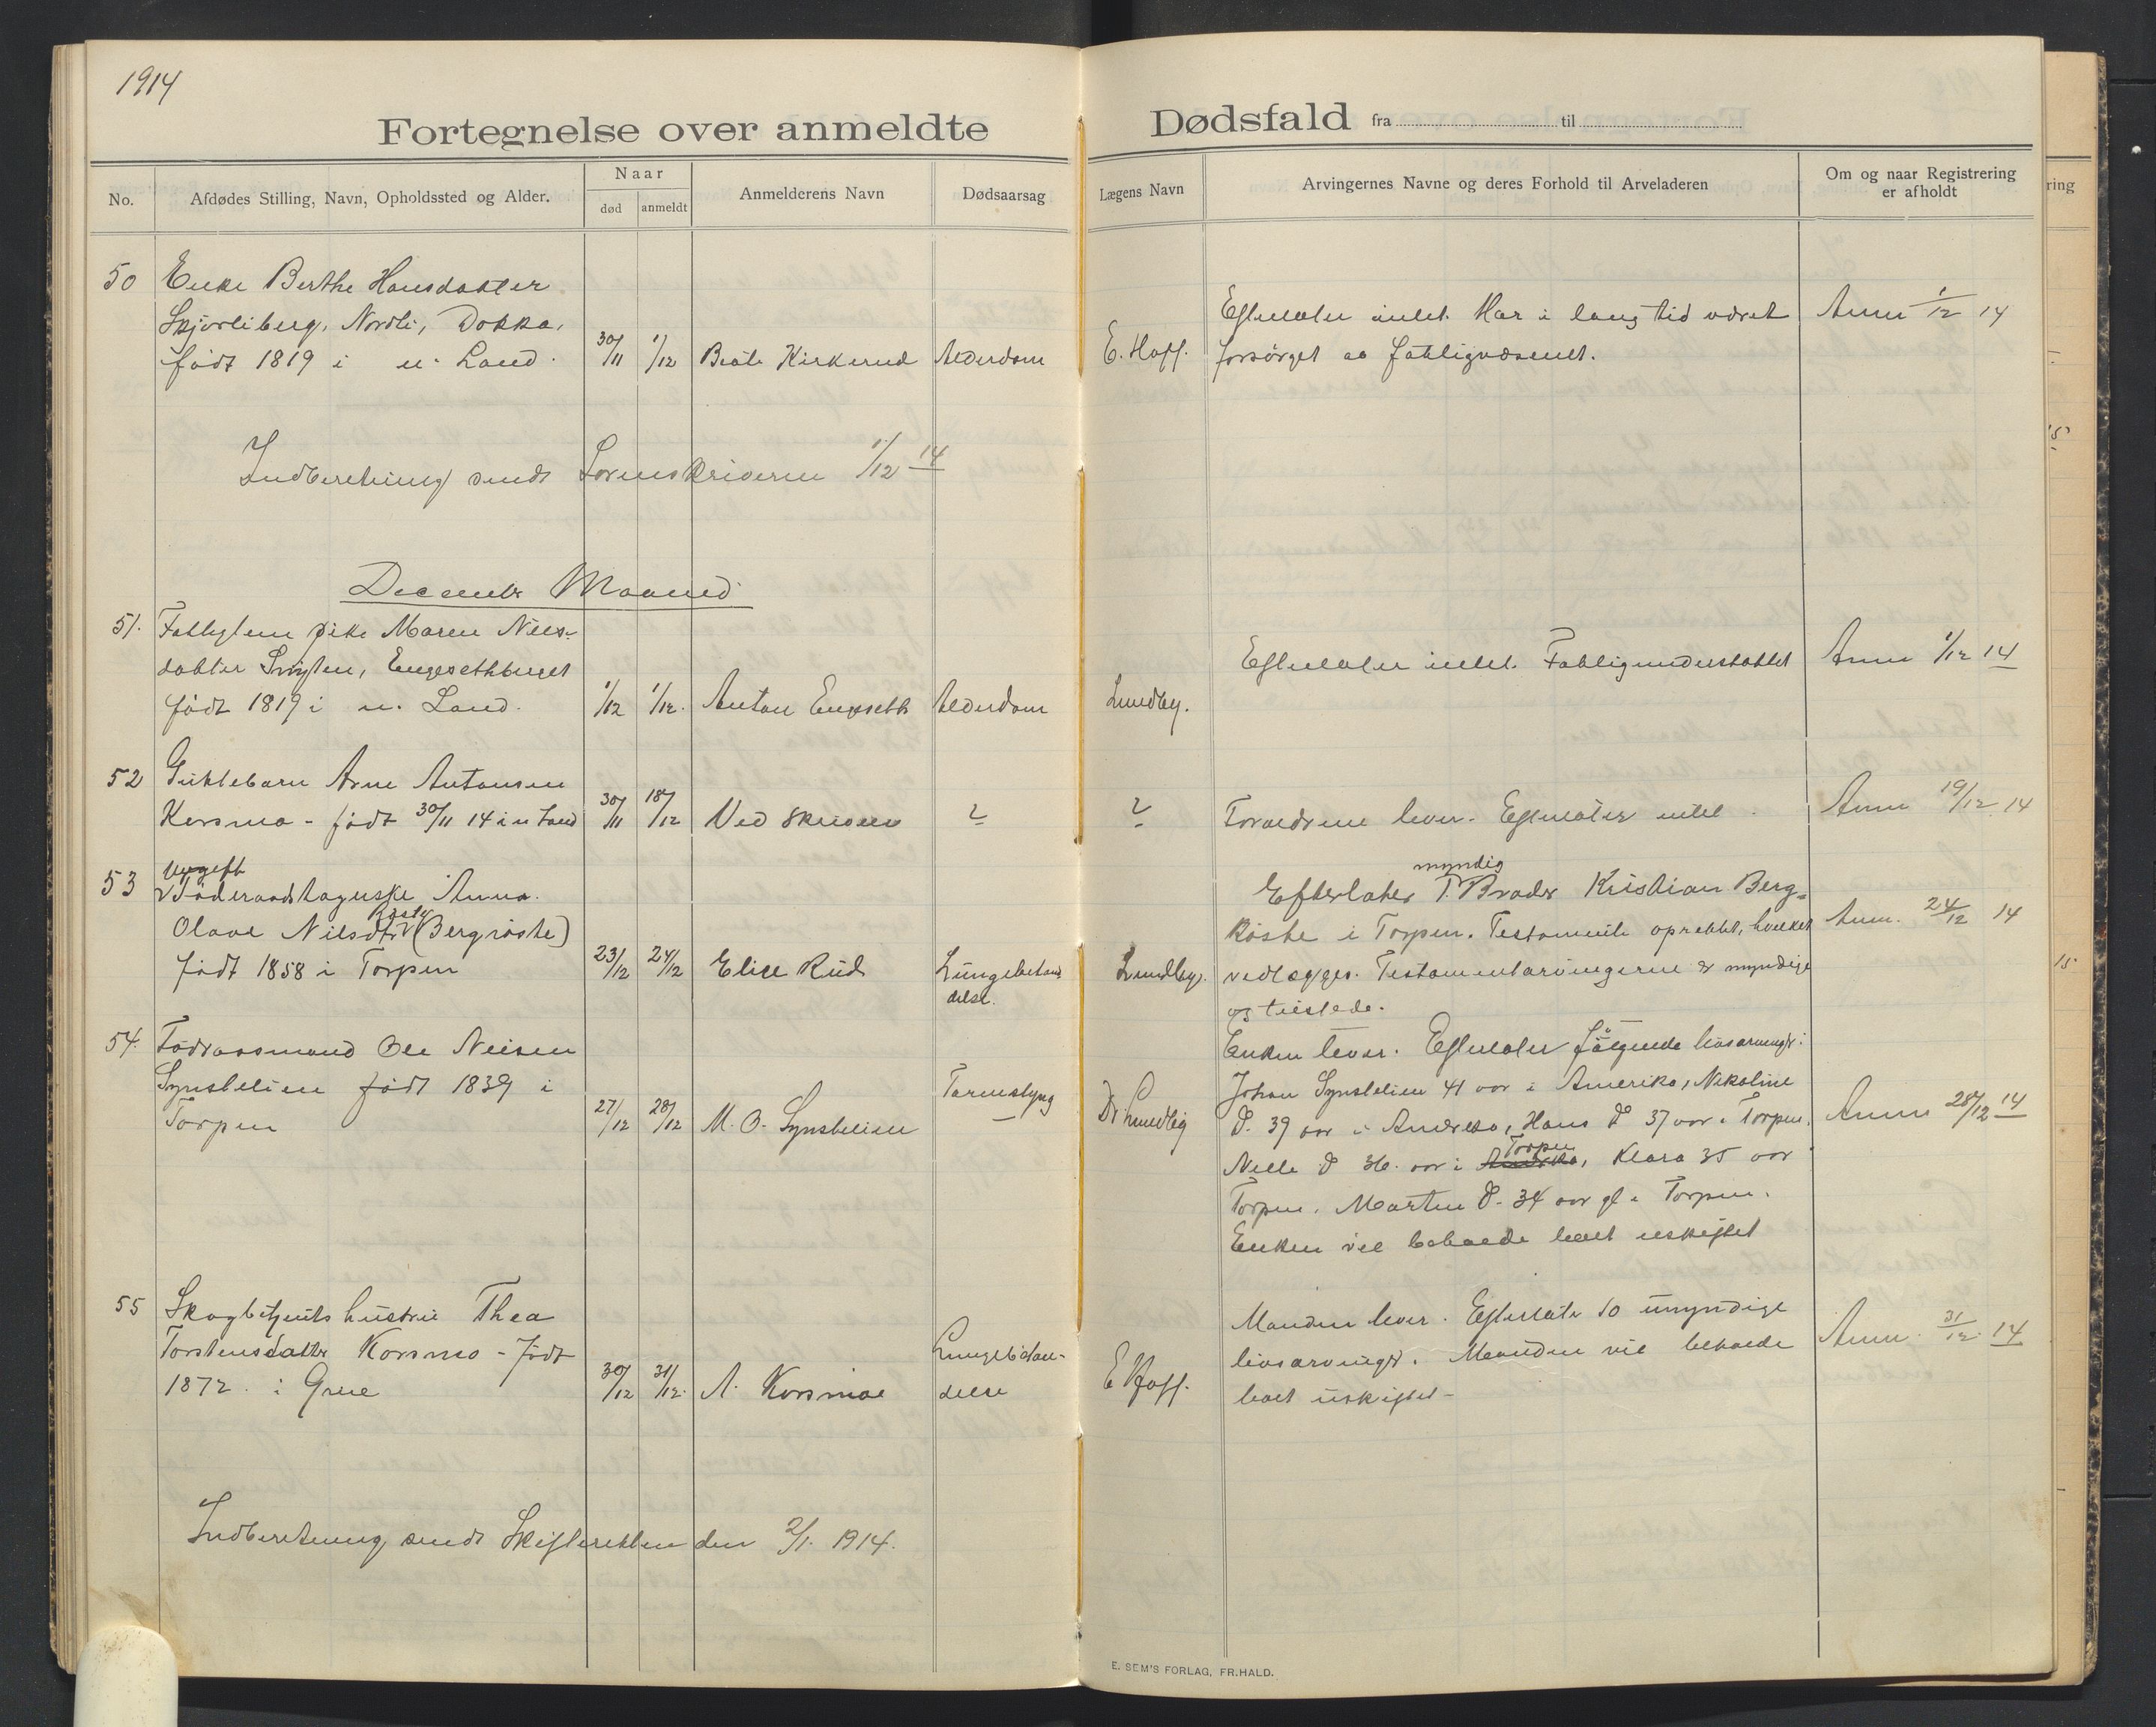 1914
Fortegnelse over anmeldte Dødsfald fra til
No. Afdødes Stilling, Navn, Opholdssted og Alder. Naar død anmeldt Anmelderens Navn Dødsaarsag Lægens Navn Arvingernes Navne og deres Forhold til Arveladeren Om og naar Registrering er afholdt
50 Enke Berthe Hansdatter
Skjørliberg, Nordli, Dokka,
født 1819 i n. Land. 30/11 1/12 Beate Kirkerud Alderdom E. Hoff.
Efterlater intet. Har i lang tid været
forsørget av fattigvæsenet.
Anm 1/12 14
Indberetning sendt Sorenskriveren 1/12 14
December Maaned
51. Fattiglem pike Maren Niels-
datter Engesethbuget
født 1819 i n. Land. 1/12 1/12. Anton Engeseth Alderdom Lundby.
Efterlater intet. Fattigunderstøttet
Anm 1/12 14
52 Guttebarn Arne Antonsen
Korsmo - født 30/11 14 i n Land 30/11 18/12 Ved skrivelse ? ?
Forældrene lever. Efterlater intet.
Anm 19/12 14
53 ugift
Føderaadstagerske Anna
Olave Nilsdtr (Bergrøste)
født 1858 i Torpen 23/12 24/12 Elise Rud Lungebetæn
delse. Lundby.
myndig
Efterlater 1. Broder Kristian Berg-
røste i Torpen. Testamente oprettet, hvilket
vedlægges. Testamentarvingerne er myndige
og tilstede.
Anm. 24/12 14
54. Føderaasmand Ole Nilsen
Synstelien født 1839 i
Torpen 27/12 28/12 M. O. Synstelien Tarmslyng Dr Lundby
Enken lever. Efterlater følgende livsarvinger:
Johan Synstelien 41 aar i Amerika, Nikoline
d. 39 aar i Amerika, Hans d 37 aar i Torpen,
Nille d 36. aar i Amerika Torpen, Klara 35 aar
Torpen. Martin d. 34 aar gl i Torpen.
Enken vil beholde boet uskiftet
Anm 28/12 14
55 Skogbetjents hustru Thea
Torstensdatter Korsmo - født
1872. i Grue 30/12 31/12. A. Korsmo Lungebetæn-
delse E Hoff.
Manden lever. Efterlater 10 umyndige
livsarvinger. Manden vil beholde
boet uskiftet -
Anm. 31/12 14
Indberetning sendt Skifteretten den 2/1. 1914.
E. SEM'S FORLAG, FR.HALD.